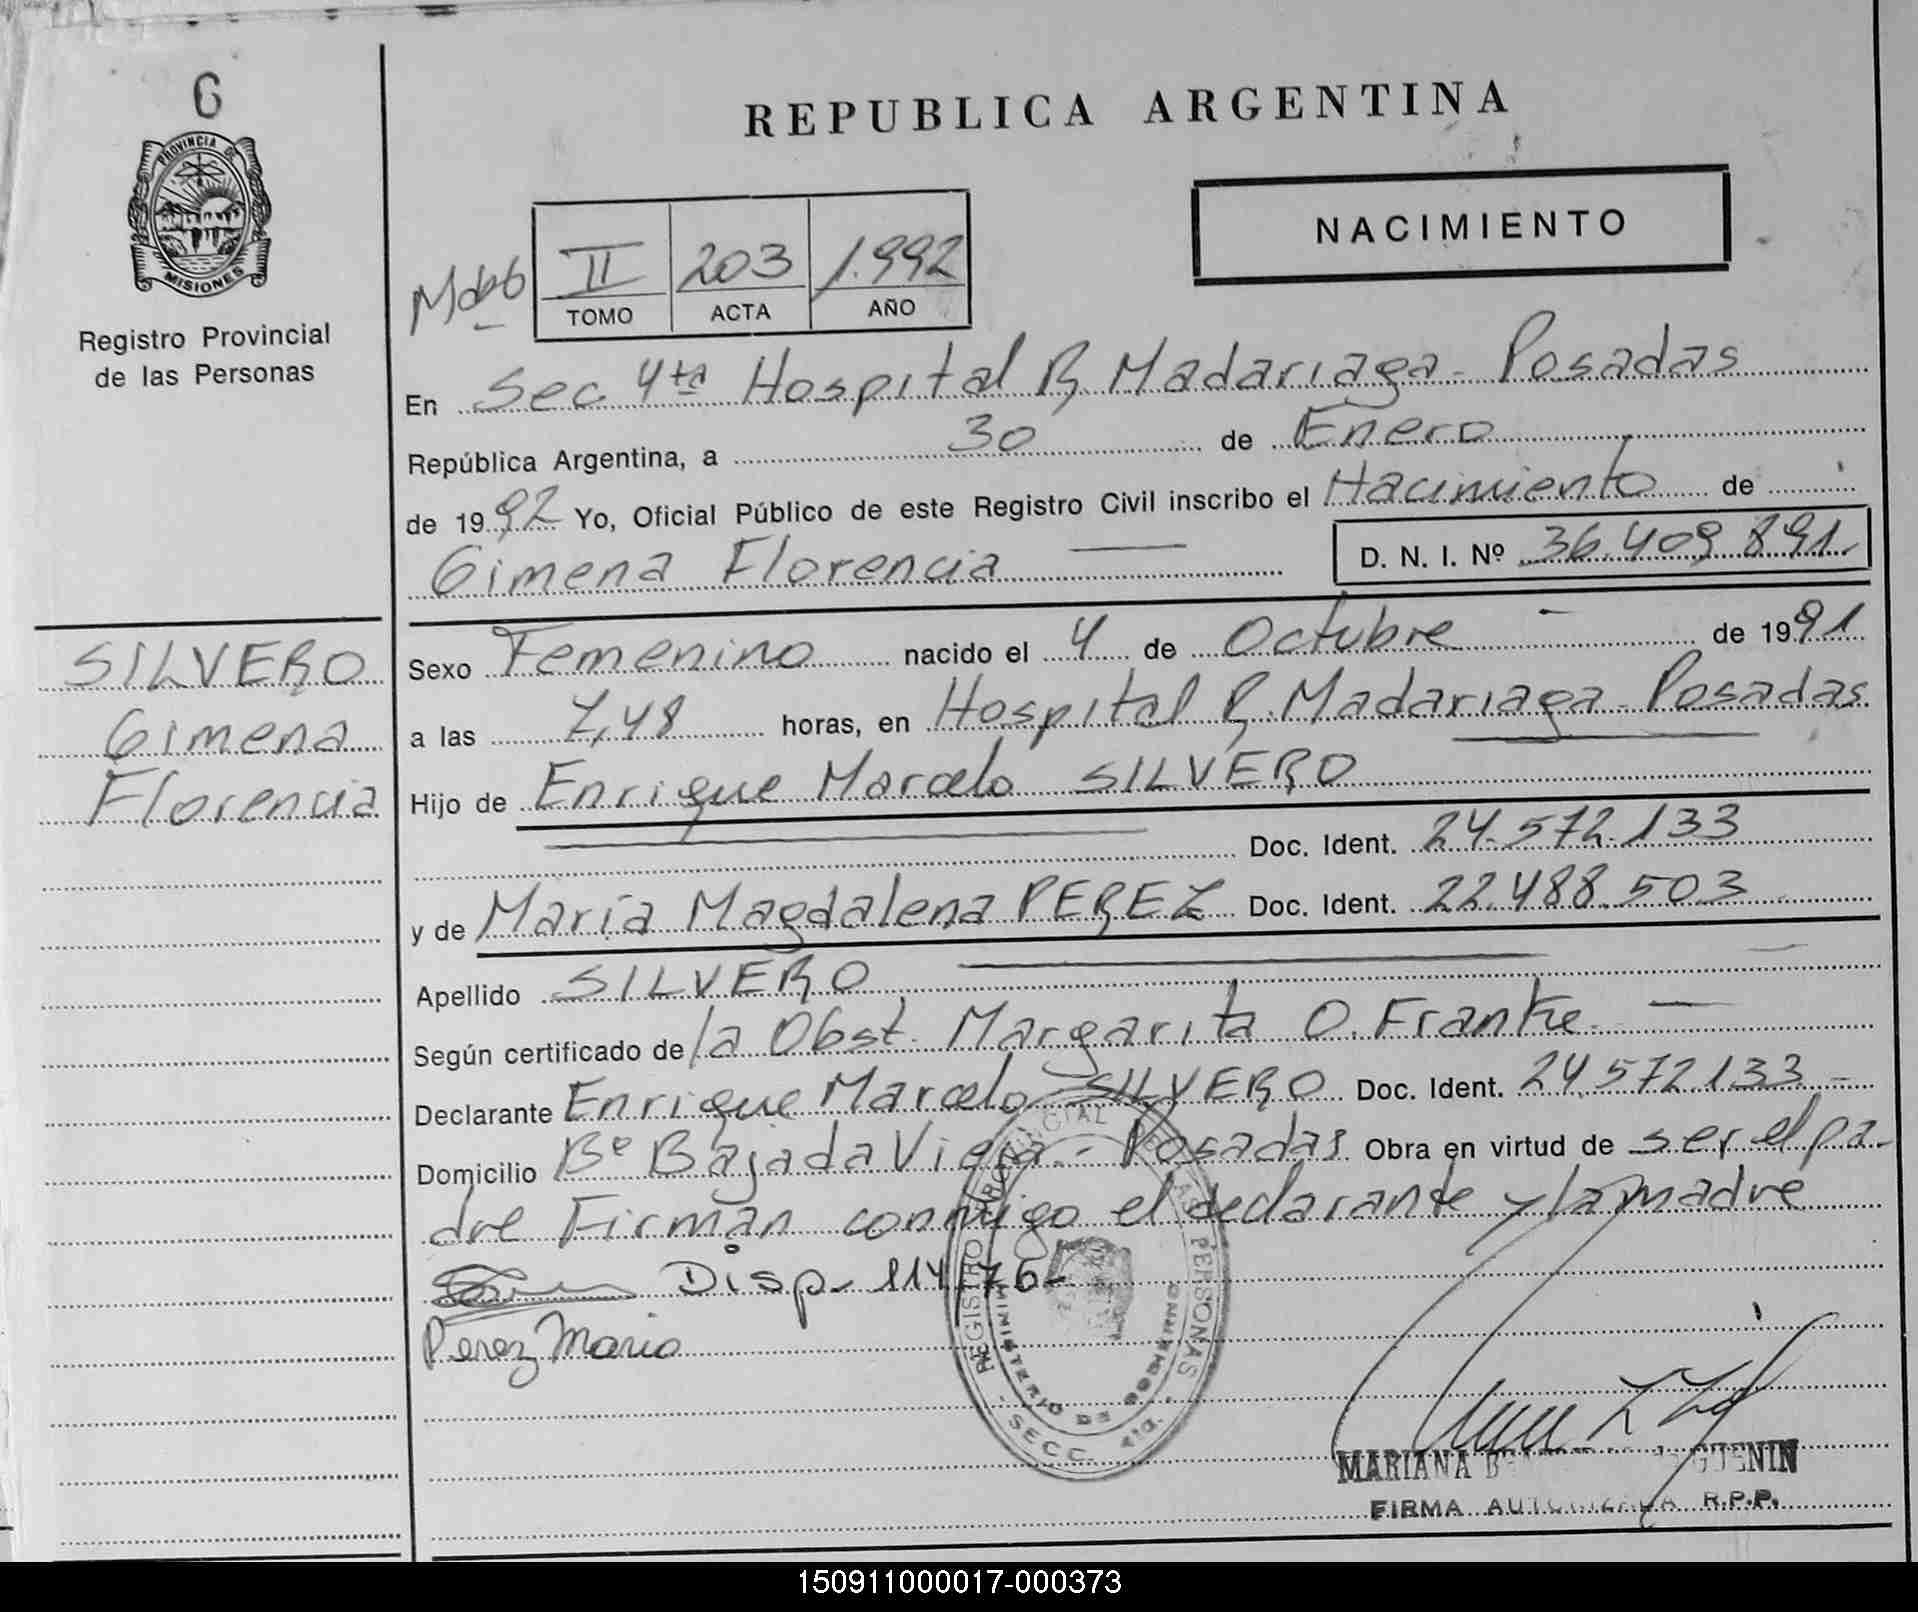 6
PROVINCIA DE
MISIONES
Registro Provincial
de las Personas
SILVERO
Gimena
Florencia
REPUBLICA ARGENTINA
NACIMIENTO
II 203 1.992
TOMO ACTA AÑO
En Sec 4ta Hospital R. Madariaga - Posadas
República Argentina, a 30 de Enero
de 1992 Yo, Oficial Público de este Registro Civil inscribo el Nacimiento de
Gimena Florencia — D. N. I. Nº 36.409.891.
Sexo Femenino nacido el 4 de Octubre - de 1991
a las 7,48 horas, en Hospital R. Madariaga - Posadas
Hijo de Enrique Marcelo SILVERO
Doc. Ident. 24.572.133
y de María Magdalena PEREZ Doc. Ident. 22.488.503
Apellido SILVERO
Según certificado de la Obst. Margarita O. Franke. —
Declarante Enrique Marcelo SILVERO Doc. Ident. 24.572.133 -
Domicilio Bº Bajada Vieja - Posadas Obra en virtud de ser el pa-
dre Firman conmigo el declarante y la madre
Disp- 114/76-
Perez Maria
REGISTRO PROVINCIAL DE LAS PERSONAS
MINISTERIO DE GOBIERNO
SECC. 4ta.
MARIANA
FIRMA AUTORIZADA R.P.P.
150911000017-000373